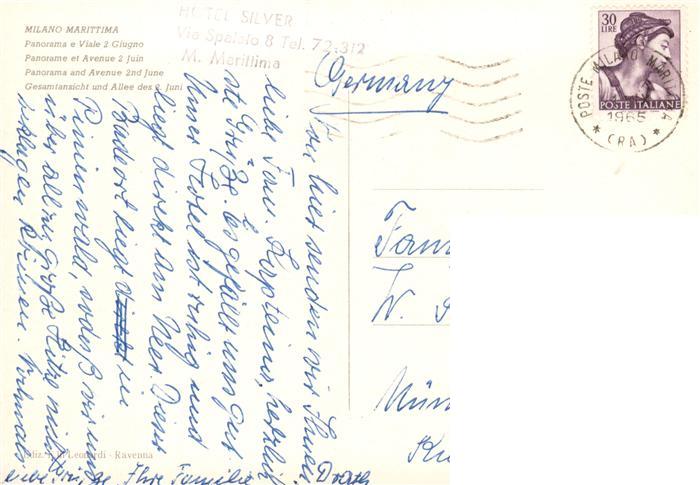 MILANO MARITTIMA
Panorama e Viale 2 Giugno
Panorame et Avenue 2 Juin
Panorama and Avenue 2nd June
Gesamtansicht und Allee des 2. Juni
HOTEL SILVER
Via Spalato 8 Tel. 72-312
M. Marittima
30
LIRE
POSTE ITALIANE
POSTE MILANO MARITTIMA
1965
(RA)
Germany
Von hier senden wir Ihnen
liebe Fam. herzlich
ste Grüße. Es gefällt uns gut
Unser Hotel ist ruhig und
liegt direkt am Meer. Dieser
Badeort liegt in
Pinienwald, sodaß wir uns
über allzu große Hitze nicht
beklagen können. Nochmals
Ihre Familie
Fam
W.
Mün
Ediz. Leonardi - Ravenna